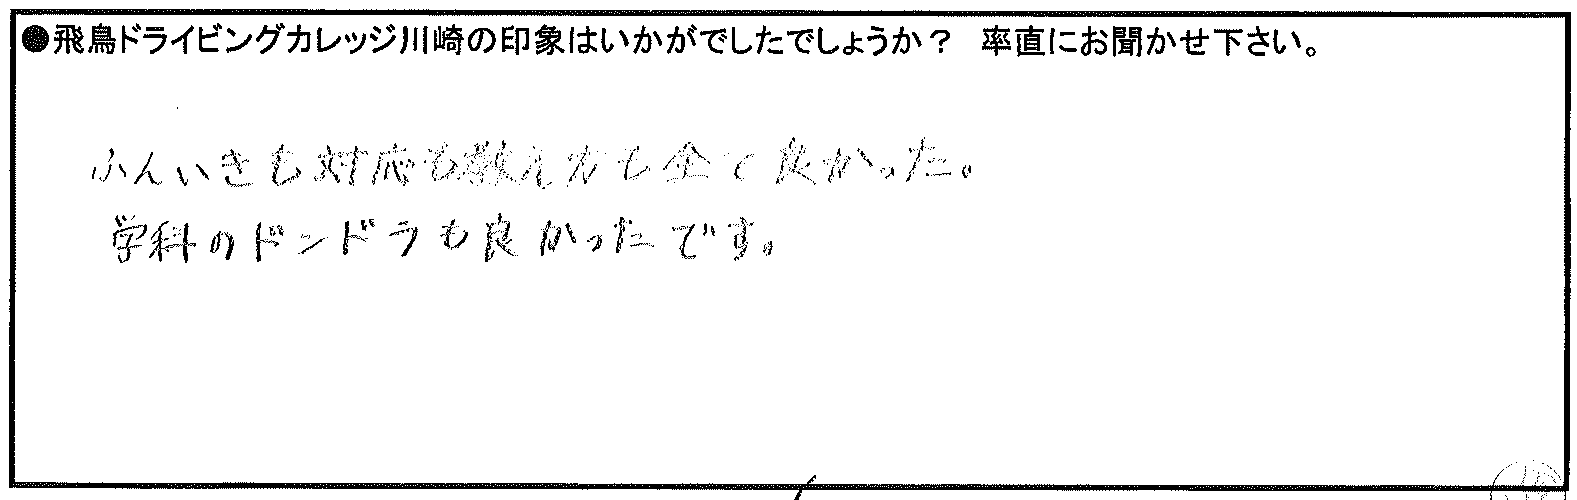 ●飛鳥ドライビングカレッジ川崎の印象はいかがでしたでしょうか？ 率直にお聞かせ下さい。
ふんいきも対応も教え方も全て良かった。
学科のドンドラも良かったです。